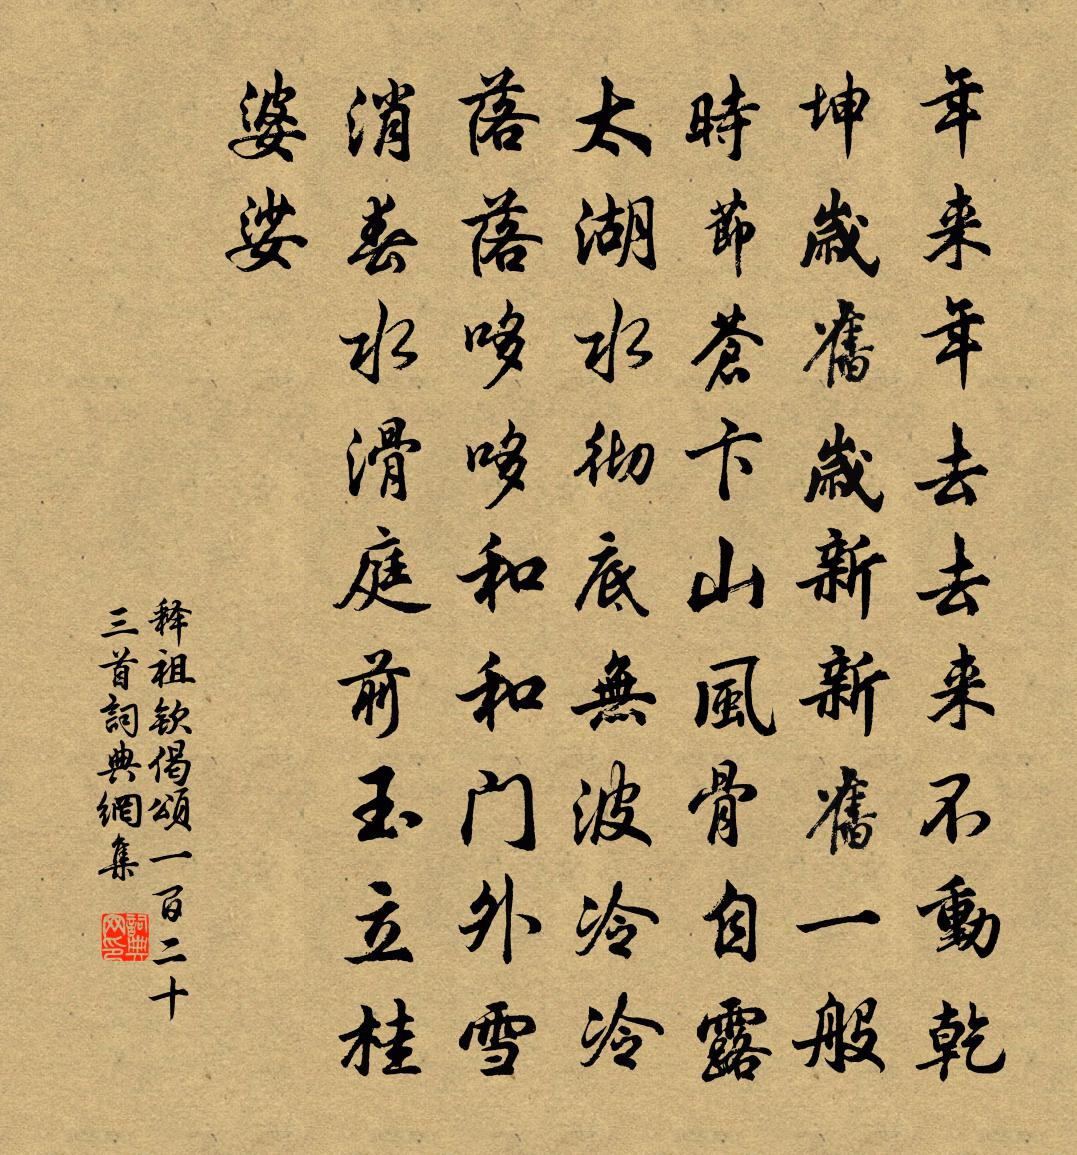 年来年去去来不動乾
坤歲舊歲新新舊一般
時節蒼卞山風骨自露
太湖水彻底無波冷冷
落落哆哆和和门外雪
消春水滑庭前玉立桂
婆娑
释祖钦偈頌一百二十
三首詞典網集
詞典网印